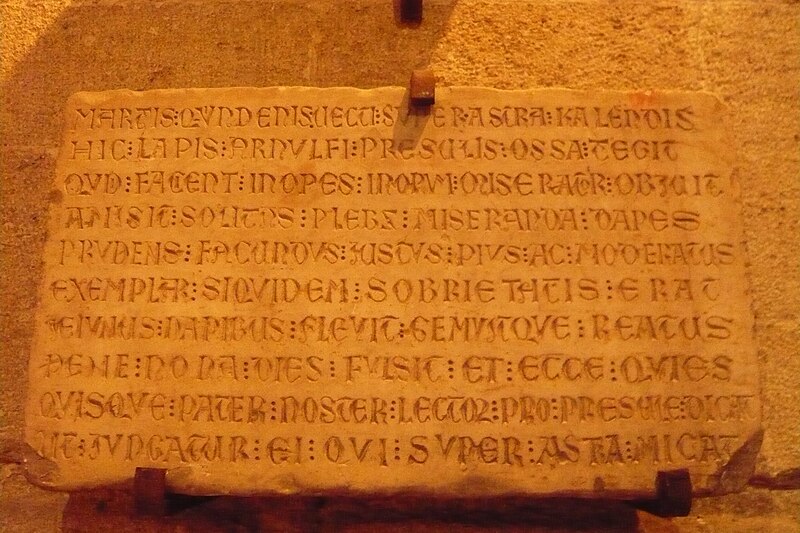 MARTIS:QVNDENIS:VECTI:SVPER:ASTRA:KALENDIS
HIC:LAPIS:ARNVLFI:PRESULIS:OSSA:TEGIT
QUD:FACENT:INOPES:INOPUM:MISERATOR:OBIIT
AMISIT:SOLITAS:PLEBS:MISERANDA:DAPES
PRVDENS:FACUNDVS:JUSTVS:PIVS:AC:MODERATUS
EXEMPLAR:SIQVIDEM:SOBRIETATIS:ERAT
IEIVNUS:DAPIBUS:FLEVIT:GEMUITQVE:REATUS
PENE:NONA:DIES:FVLSIT:ET:ECCE:QVIES
QVISQVE:PATER:NOSTER:LECTOR:PRO:PRESULE:DICAT
UT:JUNGATUR:EI:QVI:SVPER:ASTRA:MICAT